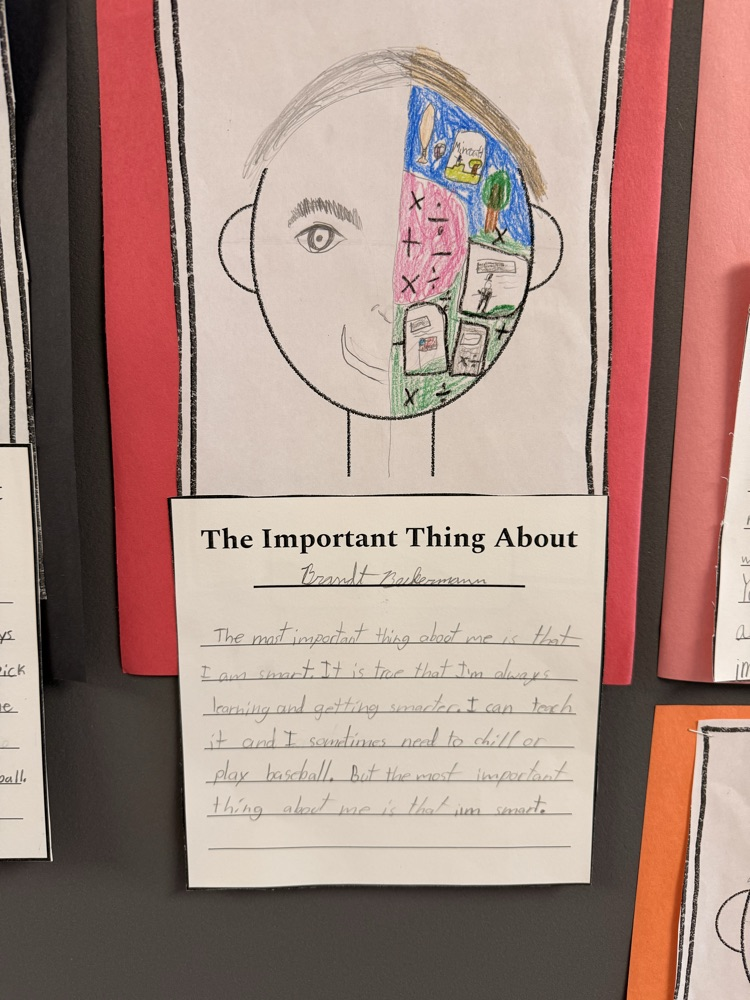 Minecraft
The Important Thing About
Brandt Beckermann
The most important thing about me is that
I am smart. It is true that I'm always
learning and getting smarter. I can teach
it and I sometimes need to chill or
play baseball. But the most important
thing about me is that im smart.
ys
ick
e
ball.